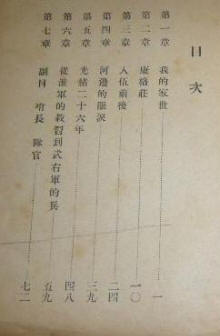 目次
第一章 我的家世 一
第二章 康格莊 一〇
第三章 入伍前後 二四
第四章 河邊的眼淚 三九
第五章 光緒二十六年 四八
第六章 從淮軍的教習到武右軍的兵 五九
第七章 副目 哨長 隊官 七二